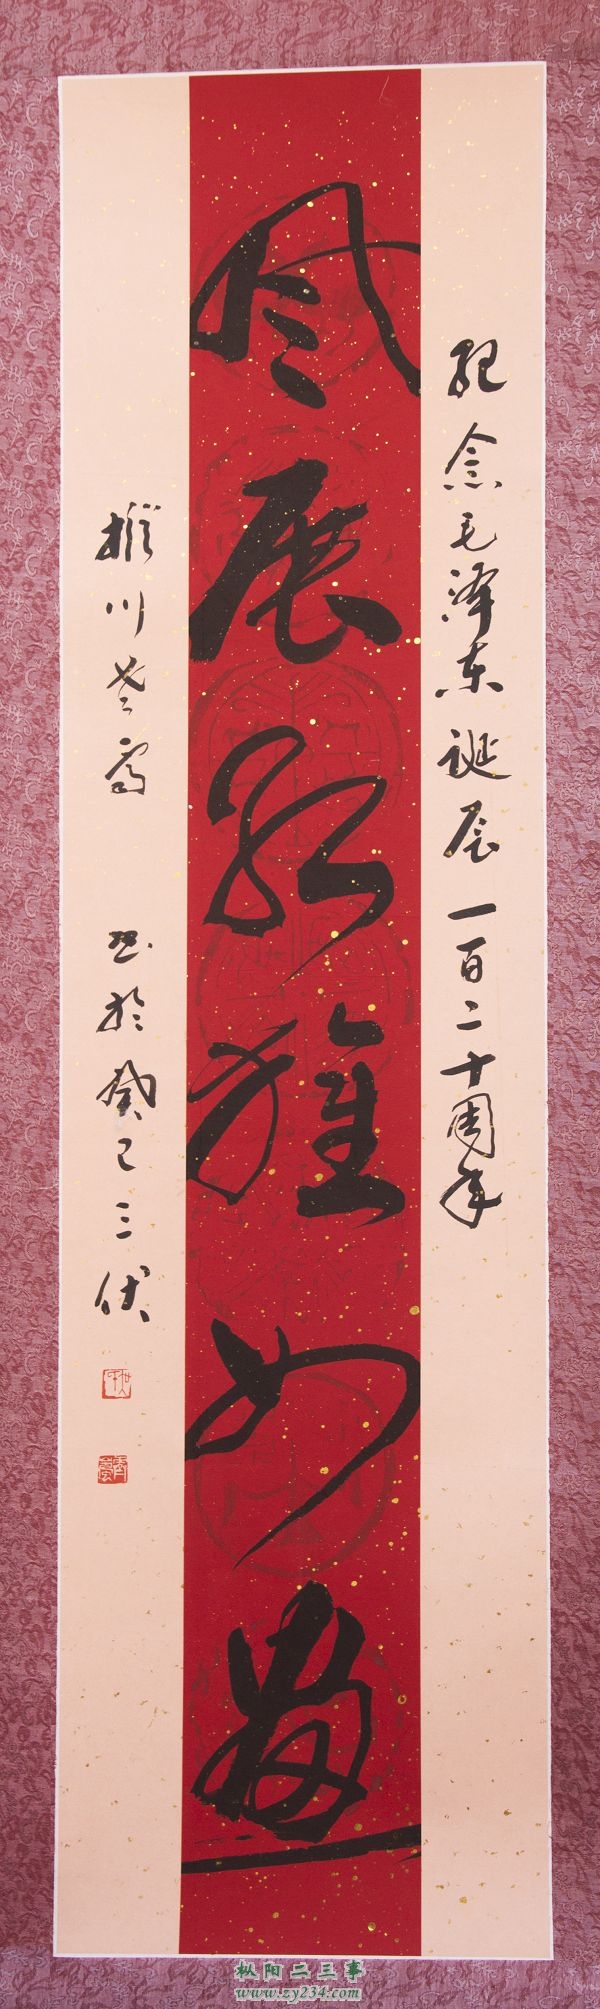 纪念毛泽东诞辰一百二十周年
风展红旗如画
樅川
书於癸巳三伏
枞阳二三事
www.zy234.com